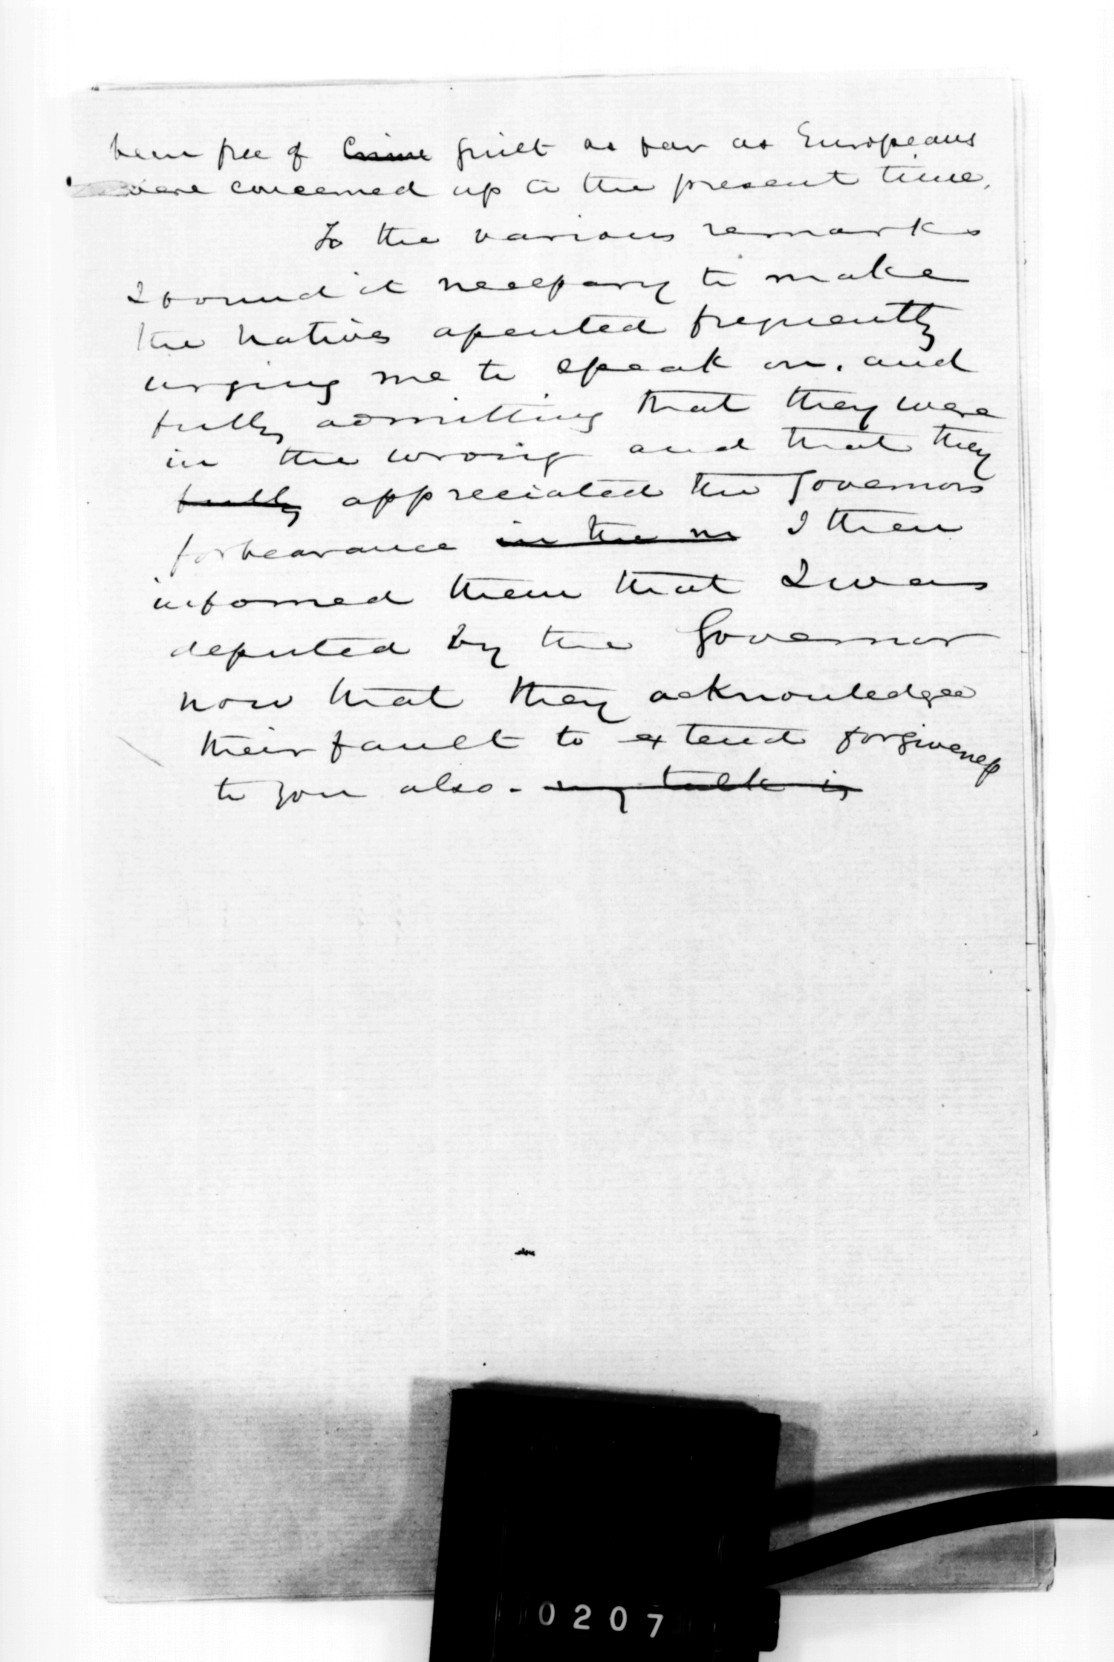 been free of ~~Crime~~ guilt as far as Europeans
were concerned up to the present time.
To the various remarks
I found it necessary to make
the Natives assented frequently
urging me to speak on. and
fully admitting that they were
in the wrong and that they
~~fully~~ appreciated the Governors
forbearance ~~in the m~~ I then
informed them that I was
deputed by the Governor
now that they acknowledged
their fault to extend forgiveness
to you also - ~~my talk is~~
0207